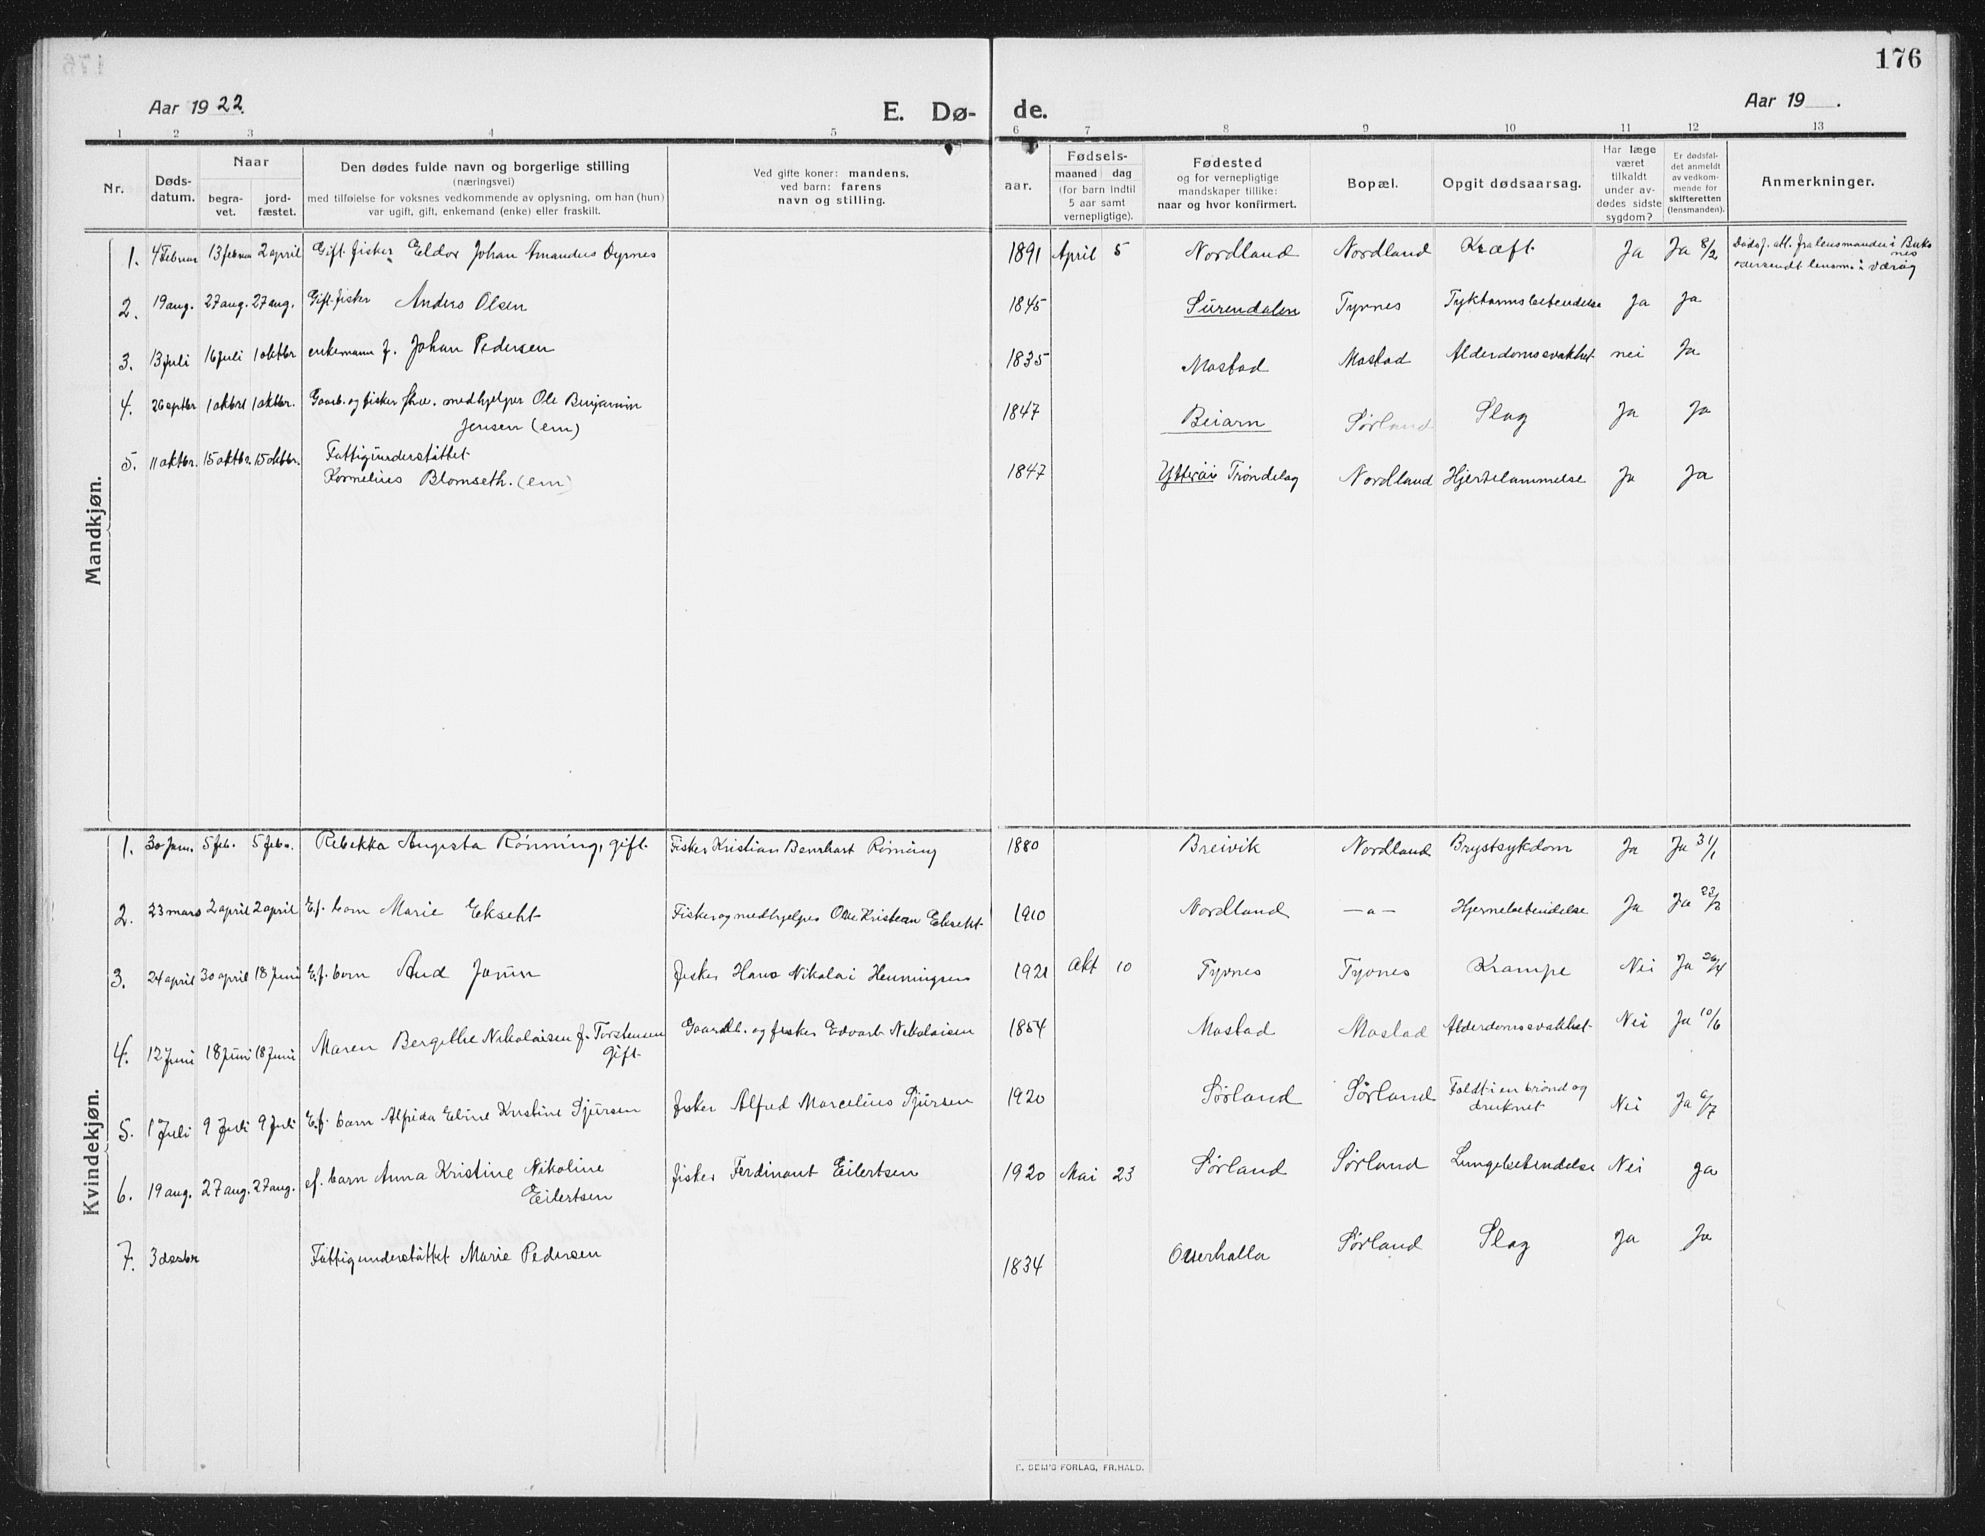 176
Aar 1922.
E. Dø-
de.
Aar 19 .
1 2 3 4 5 6 7 8 9 10 11 12 13
Nr.
Døds-
datum.
Naar
begra-
vet.
jord-
fæstet.
Den dødes fulde navn og borgerlige stilling
(næringsvei)
med tilføielse for voksnes vedkommende av oplysning, om han (hun)
var ugift, gift, enkemand (enke) eller fraskilt.
Ved gifte koner: mandens,
ved barn: farens
navn og stilling.
aar.
Fødsels-
maaned dag
(for barn indtil
5 aar samt
vernepligtige).
Fødested
og for vernepligtige
mandskaper tillike:
naar og hvor konfirmert.
Bopæl.
Opgit dødsaarsag.
Har læge
været
tilkaldt
under av-
dødes sidste
sygdom?
Er dødsfal-
det anmeldt
av vedkom-
mende for
skifteretten
(lensmanden).
Anmerkninger.
Mandkjøn.
1. 4 Februar 13 februar 2 april Gift fisker Eldor Johan Amandus Dyrnes 1891 April 5 Nordland Nordland Kræft Ja Ja 8/2 Dødsf. att. fra lensmanden i Buks
nes
oversendt lensm. i Værøy
2. 19 aug. 27 aug. 27 aug. Gift fisker Anders Olsen 1845 Surendalen Tyvnes Tyktarmsbetendelse Ja Ja
3. 13 Juli 16 Juli 1 oktbr enkemann f. Johan Pedersen 1835 Mostad Mostad Alderdomssvakhet nei Ja
4. 26 septbr 1 oktbr 1 oktbr. Gaarb. og fisker fhv. medhjelper Ole Benjamin
Jensen (em) 1847 Beiarn Sørland Slag Ja Ja
5. 11 oktbr. 15 oktbr. 15 oktbr. Fattigunderstøttet
Kornelius Blomseth. (em) 1847 Ytterøi Trøndelag Nordland Hjertelammelse Ja Ja
Kvindekjøn.
1. 30 Jan. 5 feb. 5 feb. Rebekka Augusta Rønning, gift Fisker Kristian Bernhart Rønning 1880 Breivik Nordland Brystsykdom Ja Ja 31/1
2. 23 mars 2 april 2 april E.f. barn Marie Ekseht Fisker og medhjelper Ole Kristean Ekseht 1910 Nordland —a— Hjernebetendelse Ja Ja 23/3
3. 24 april 30 april 18 Juni E.f. barn Aud Jorun fisker Hans Nikolai Henningsen 1921 Okt 10 Tyvnes Tyvnes Krampe Nei Ja 26/4
4. 12 Juni 18 Juni 18 Juni Maren Bergethe Nikolaisen f. Torstensen
Gift Gaardb. og fisker Edvart Nikolaisen 1854 Mostad Mostad Alderdomssvakhet Nei Ja 10/6
5. 1 Juli 9 Juli 9 Juli E.f. barn Alfrida Eline Kristine Sjursen fisker Alfred Marcelius Sjursen 1920 Sørland Sørland Faldt i en brønd og
druknet Nei Ja 6/7
6. 19 aug. 27 aug. 27 aug. ef. barn Anna Kristine Nikoline
Eilertsen fisker Ferdinant Eilertsen 1920 Mai 23 Sørland Sørland Lungebetendelse Nei Ja
7. 3 desbr Fattigunderstøttet Marie Pedersen 1834 Overhalla Sørland Slag Ja Ja
E. SEM'S FORLAG, FR.HALD.